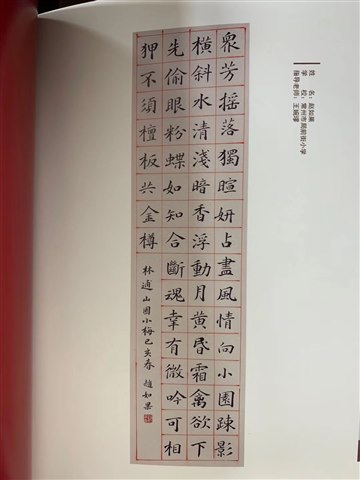 姓 名：赵如果
学 校：常州市局前街小学
指导老师：
衆芳摇落獨暄妍占盡風情向小園疎影
橫斜水清淺暗香浮動月黄昏霜禽欲下
先偷眼粉蝶如知合斷魂幸有微吟可相
狎不須檀板共金樽
林逋山園小梅己亥春 趙如果